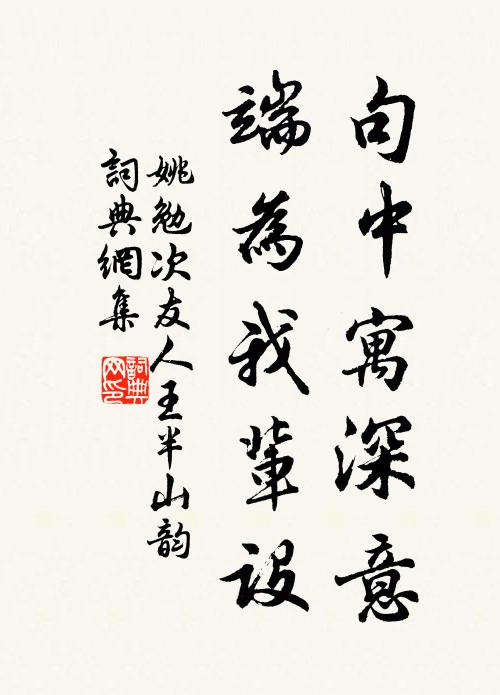 句中寓深意
端為我輩設
姚勉次友人王半山韵
詞典網集
詞典网印